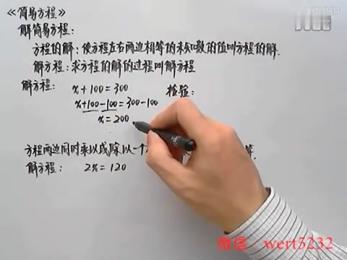 《简易方程》
解简易方程：
方程的解：使方程左右两边相等的未知数的值叫方程的解.
解方程：求方程的解的过程叫解方程
解方程： x+100=300 检验：
x+100-100=300-100
x=200
方程两边同时乘以或除以一个 等.
解方程： 2x=120
wert5232